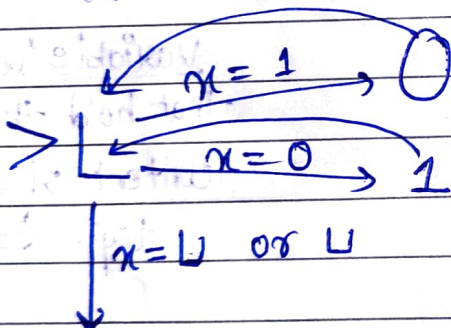 x = 1 0
> L x = 0 1
x = ⊔ or ⊔